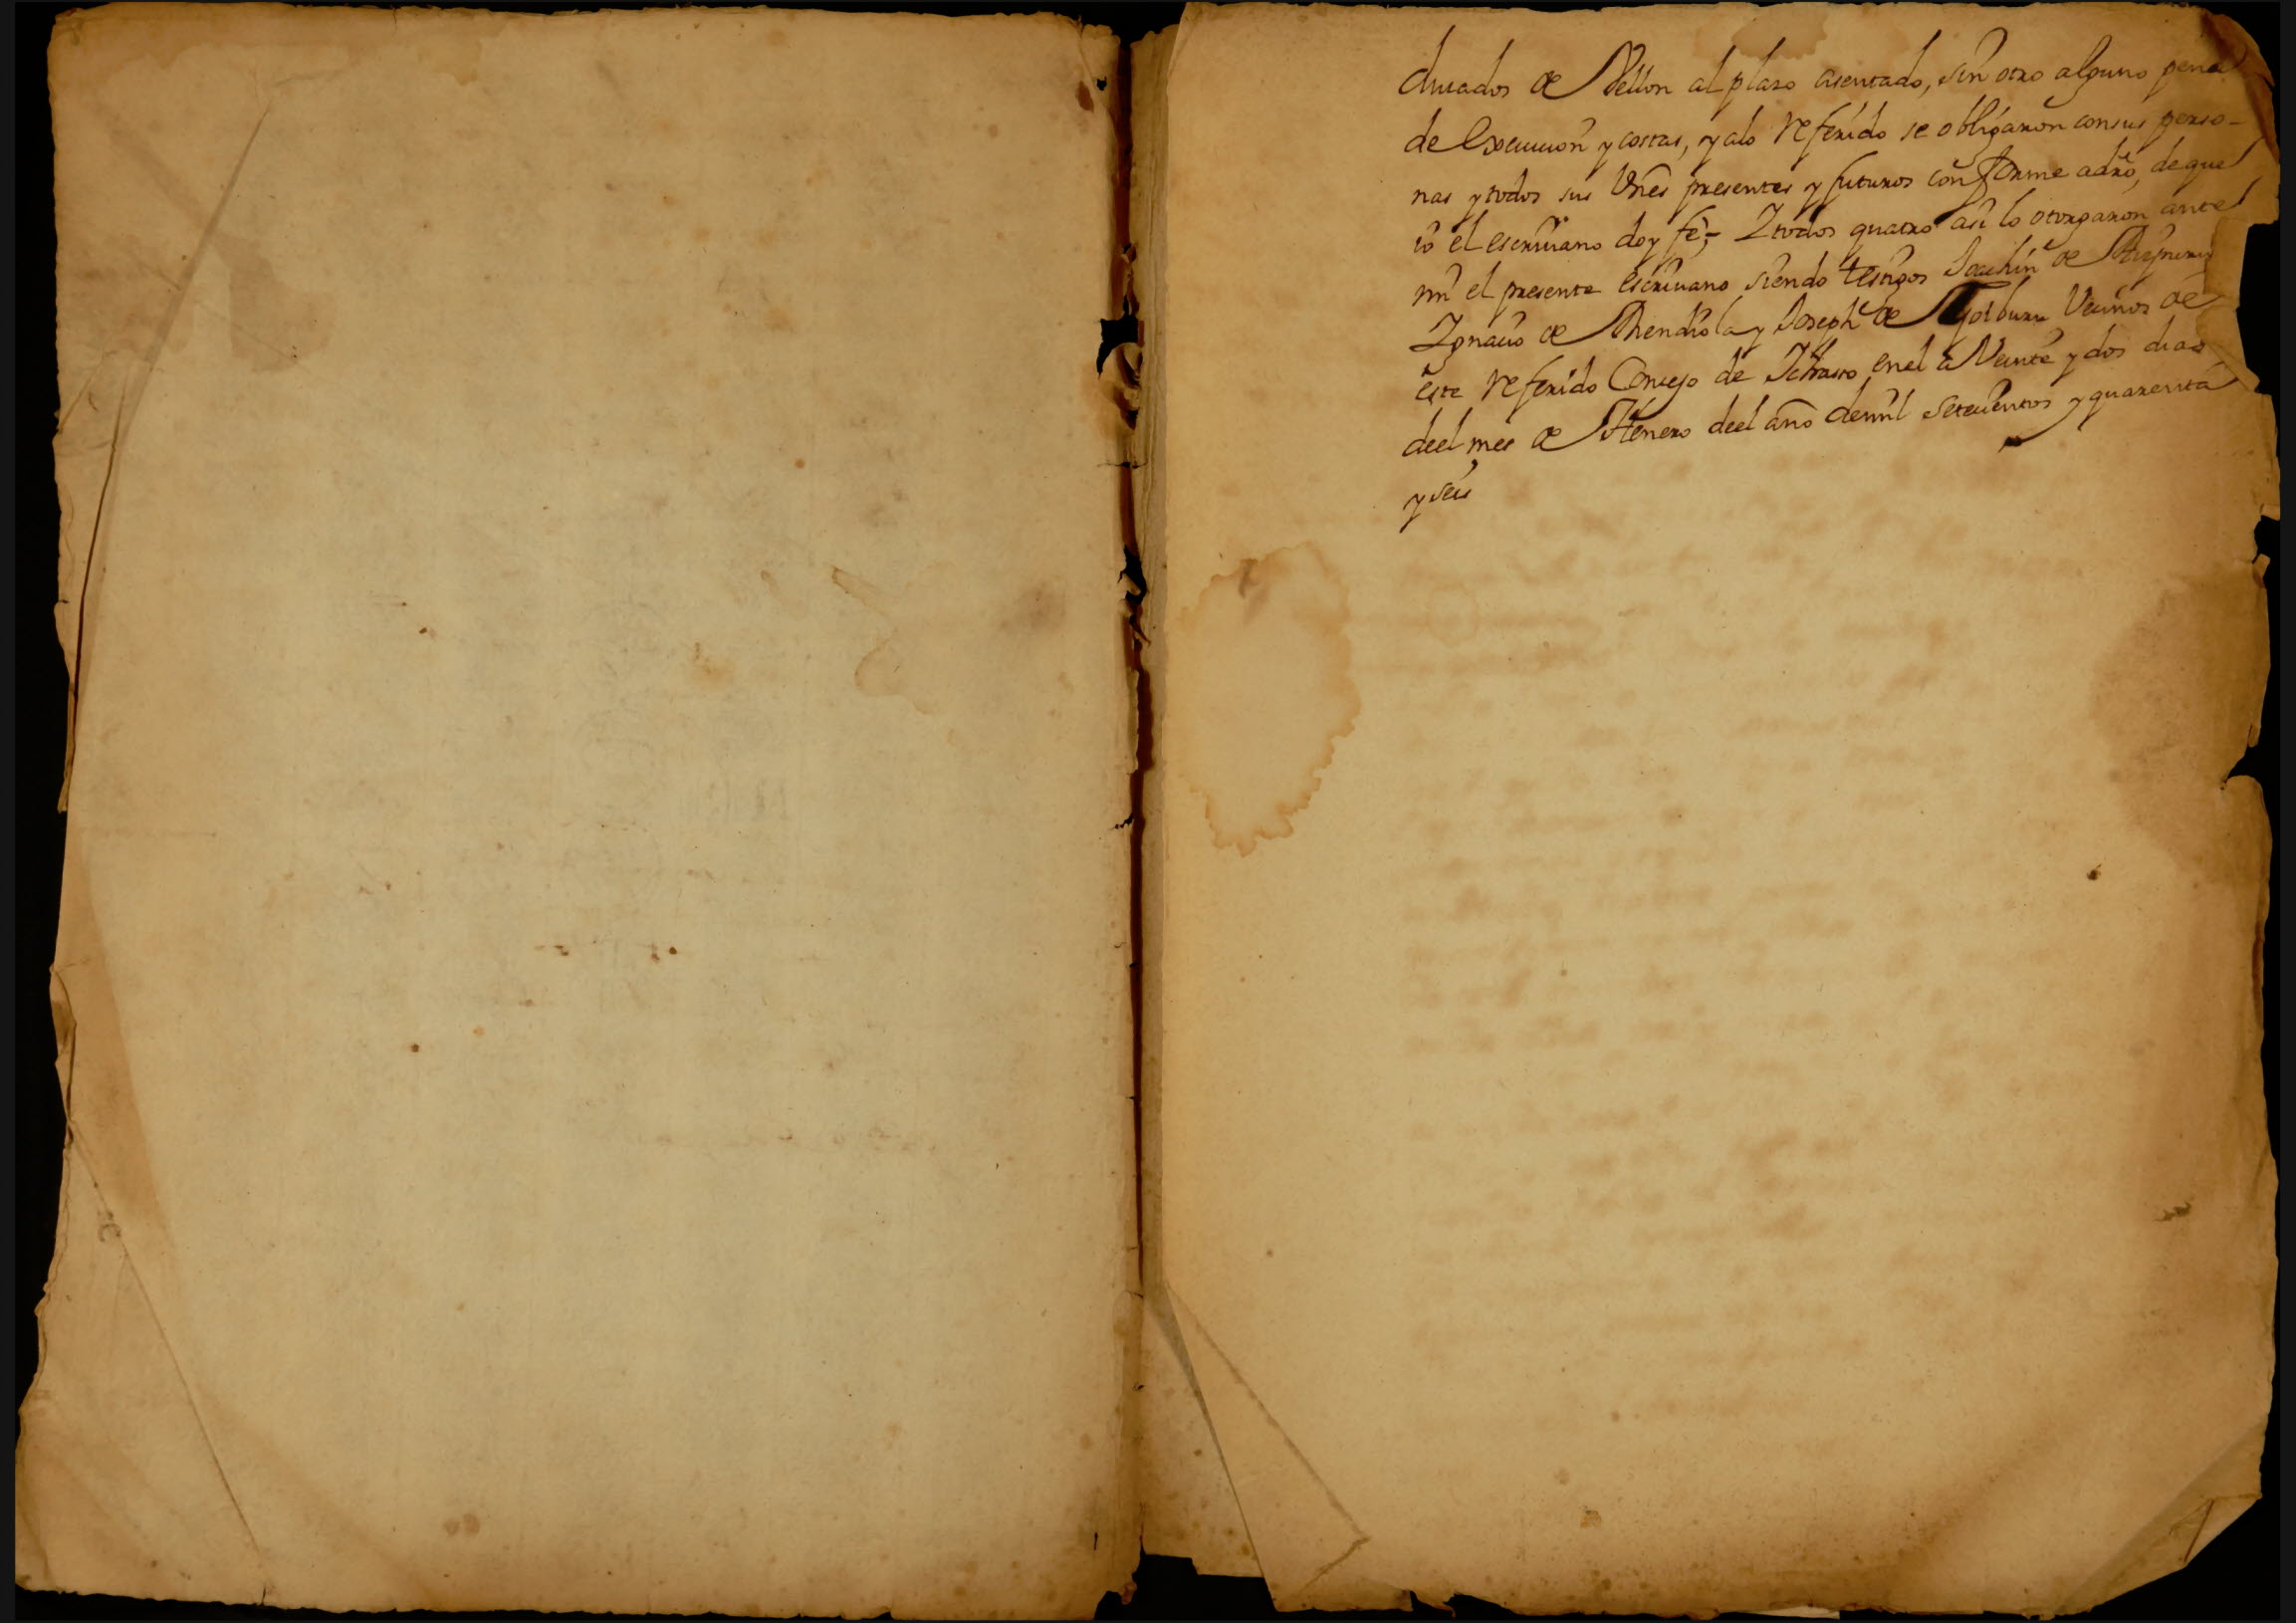 ducados de Vellon al plazo asentado, sin otro alguno pena
de execucion y costas, y alo referido se obligaron consus perso-
nas y todos sus Vnes presentes y futuros conforme adrō, deque
io el escriuano doy fe,- Y todos quatro asi lo otorgaron ante
mi el presente escriuano siendo testigos Joachin de
Ygnacio de Mendiola y Joseph de Vecinos de
este referido Concejo de Ichasso enel a Veinte y dos dias
deel mes de Henero deel año demil setecientos y quarenta
y seis